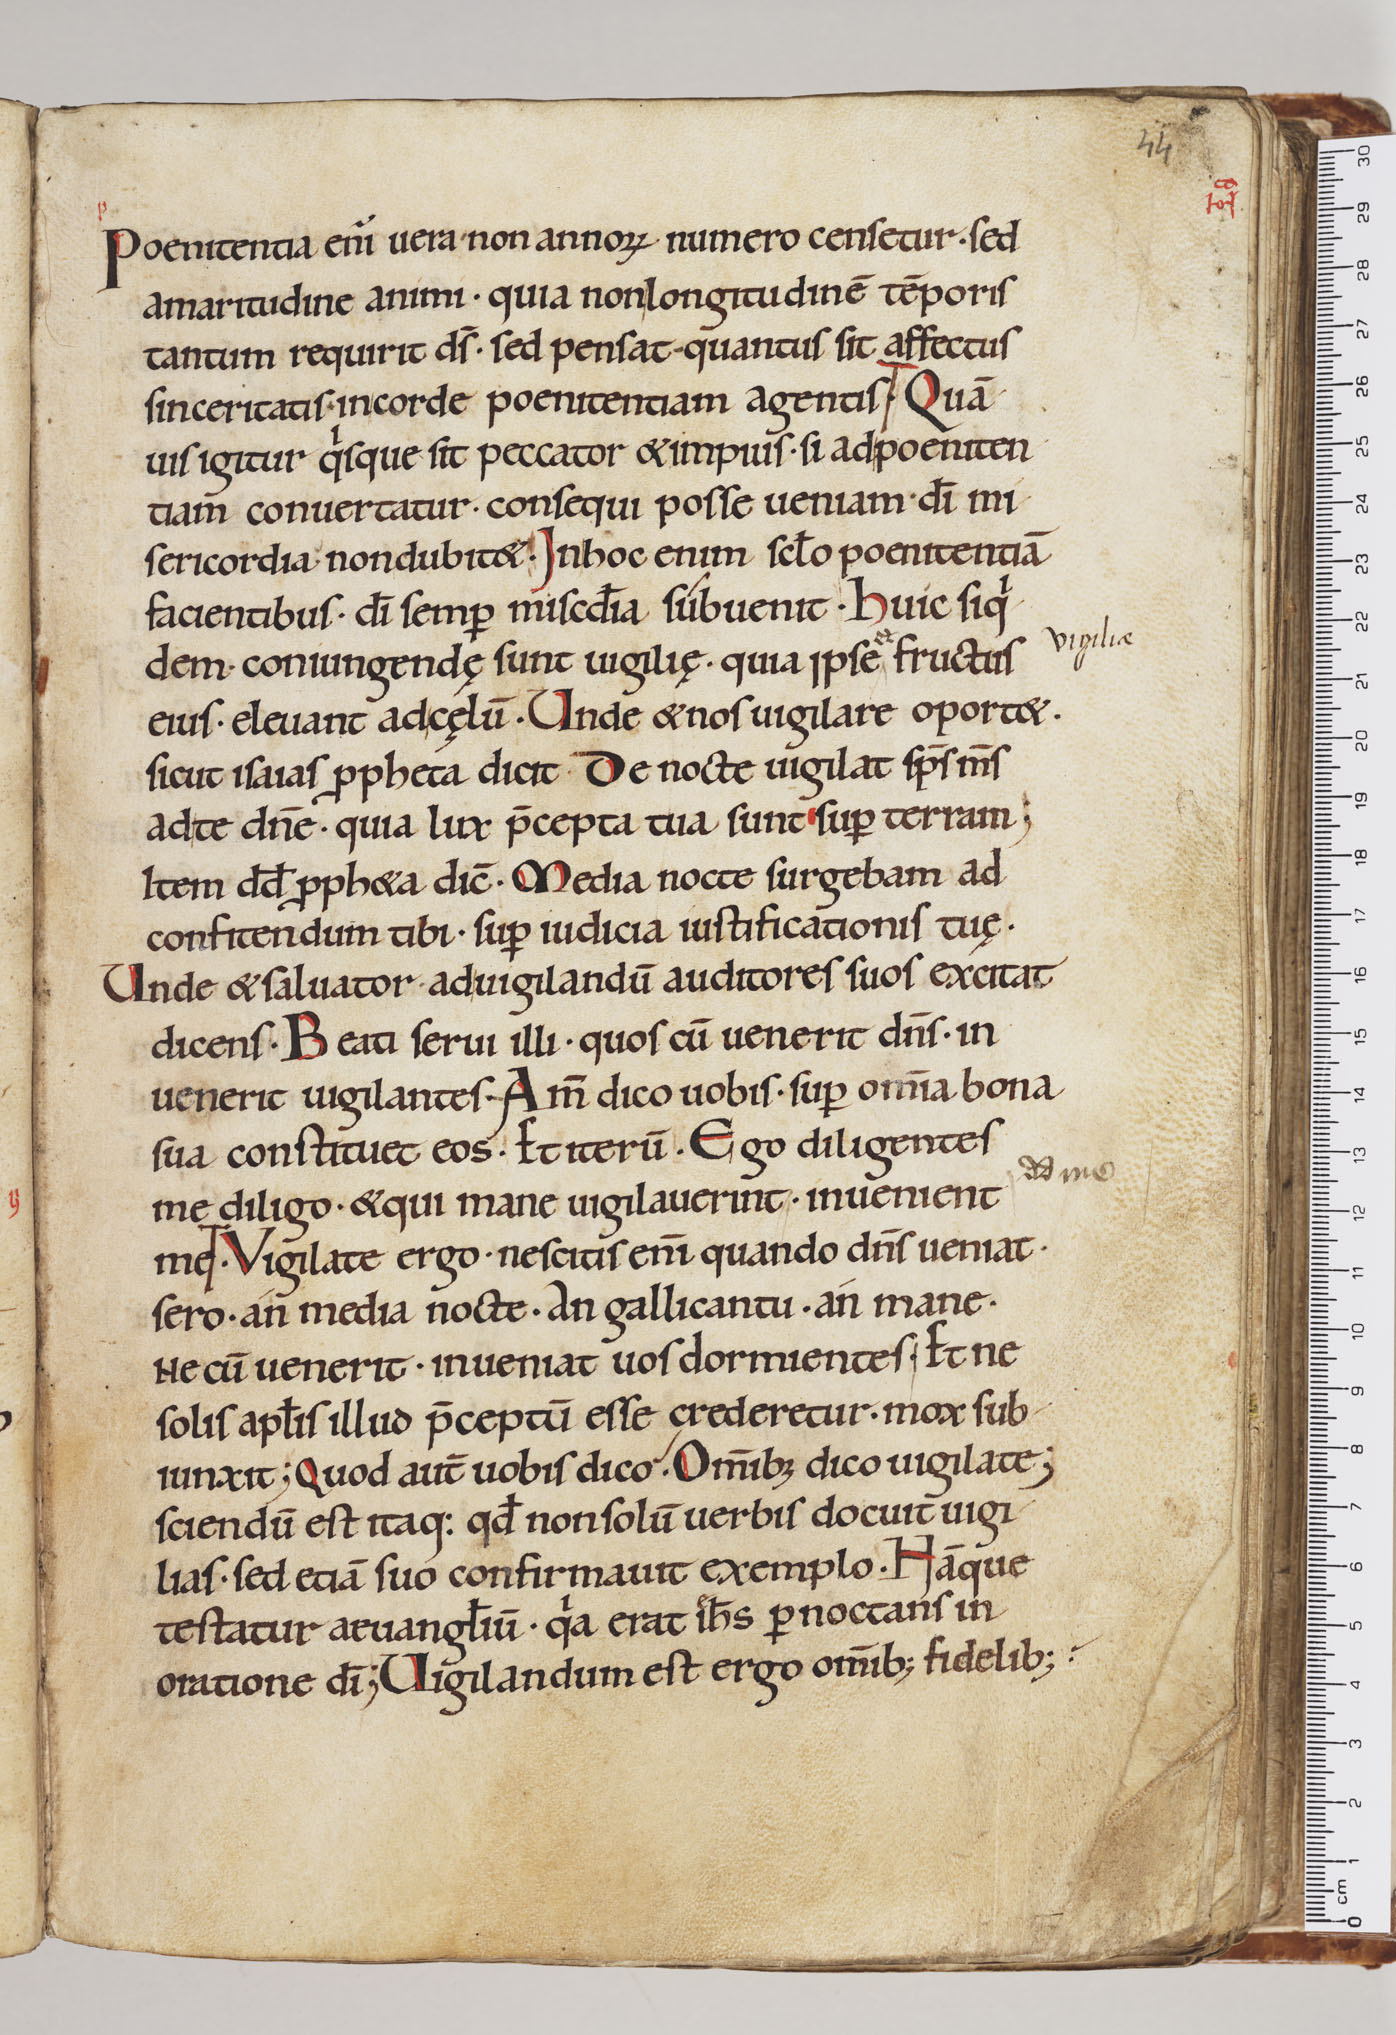 44
Poenitentia em̄ uera non annoꝝ numero censetur · sed
amaritudine animi · quia non longitudinē tēporis
tantum requirit dſ̄ · sed pensat quantus sit affectus
sinceritatis in corde poenitentiam agentis · Quā
uis igitur qͥsque sit peccator & impius · si ad poeniten
tiam conuertatur · consequi posse ueniam dī mi
sericordia non dubit& · In hoc enim scl̄o poenitentiā
facientibus · dī semꝑ miscd̄ia subuenit · Huic siqͥ
dem · coniungendę sunt uigilię · quia ipse et fructus
vigiliæ
eius · eleuant ad cęlū · Unde & nos uigilare oport& ·
sicut isaias ꝓpheta dicit De nocte uigilat sp̄s m̄s
ad te dn̄e · quia lux p̄cepta tua sunt suꝑ terram ;
Item dd̄ ꝓph&a dic̄ · Media nocte surgebam ad
confitendum tibi · suꝑ iudicia iustificationis tuę ·
Unde & saluator ad uigilandū auditores suos excitat
dicens · Beati serui illi · quos cū uenerit dn̄s · in
uenerit uigilantes · Am̄ dico uobis · suꝑ om̄ia bona
sua constituet eos · Et iterū · Ego diligentes
me diligo · & qui mane uigilauerint · inuenient
ad me
me · Vigilate ergo · nescitis em̄ quando dn̄s ueniat ·
sero · an media nocte · An gallicantu · an mane ·
Ne cū uenerit · inueniat uos dormientes ; Et ne
solis apl̄is illud p̄ceptū esse crederetur · mox sub
iunxit ; Quod aut̄ uobis dico · Om̄ibꝫ dico uigilate ;
sciendū est itaq: qd̄ non solū uerbis docuit uigi
lias · sed etiā suo confirmauit exemplo · Hāque
testatur aeuangl̄iū · qͥa erat ih̄s ꝑnoctans in
oratione dī ; Uigilandum est ergo om̄ib; fidelib; ·